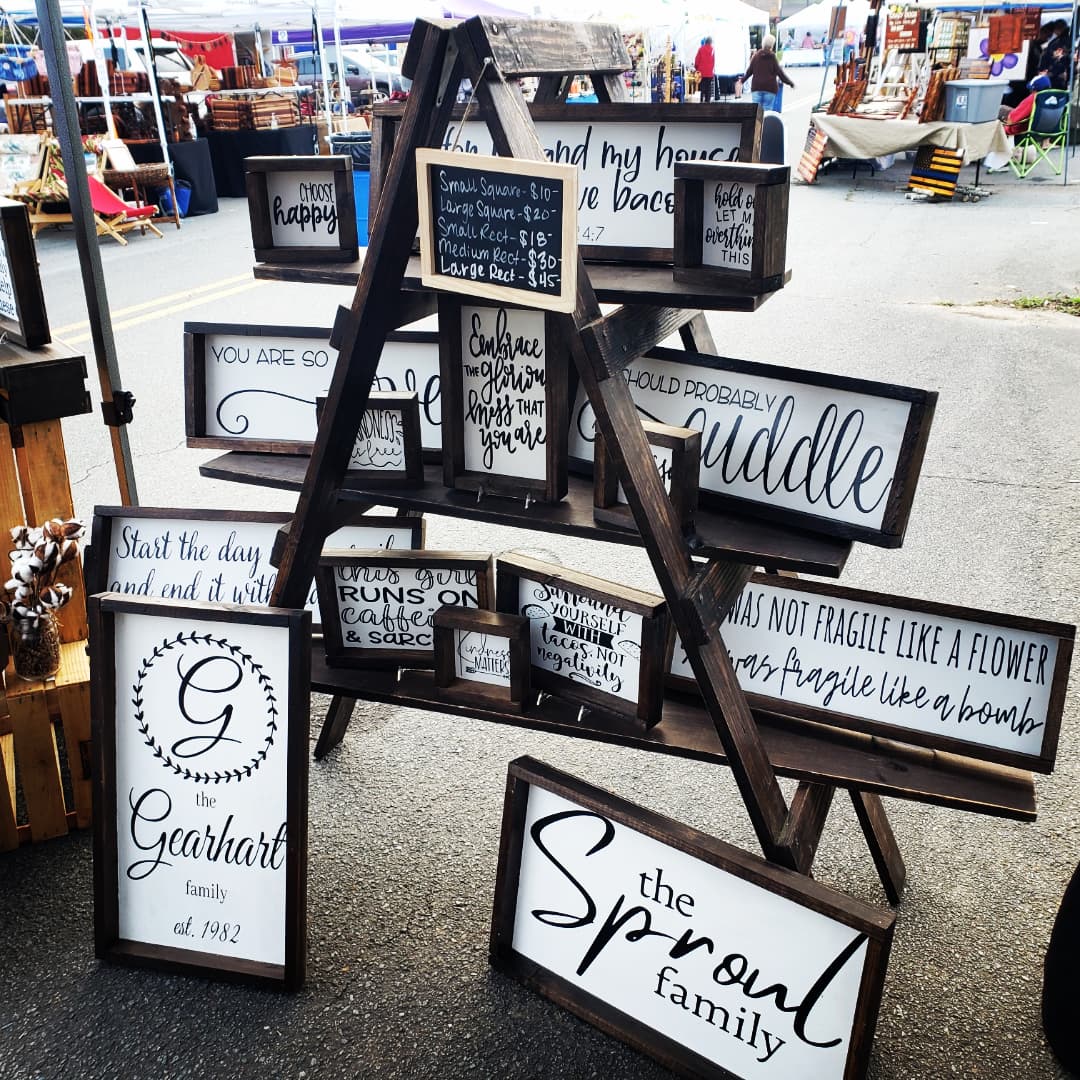 and my house
CHOOSE
happy
Small Square-$10-
Large Square-$20-
Small Rect-$18-
Medium Rect-$30-
Large Rect-$45-
4:7
hold
LET
THIS
YOU ARE SO
Embrace
THE
THAT
you are
SHOULD PROBABLY
cuddle
Start the day
and end it with
this girl
RUNS ON
& SARC
kindness
MATTERS
Surround
YOURSELF
WITH
tacos, NOT
negativity
WAS NOT FRAGILE LIKE A FLOWER
was fragile like a bomb
G
the
Gearhart
family
est. 1982
the
Sproul
family